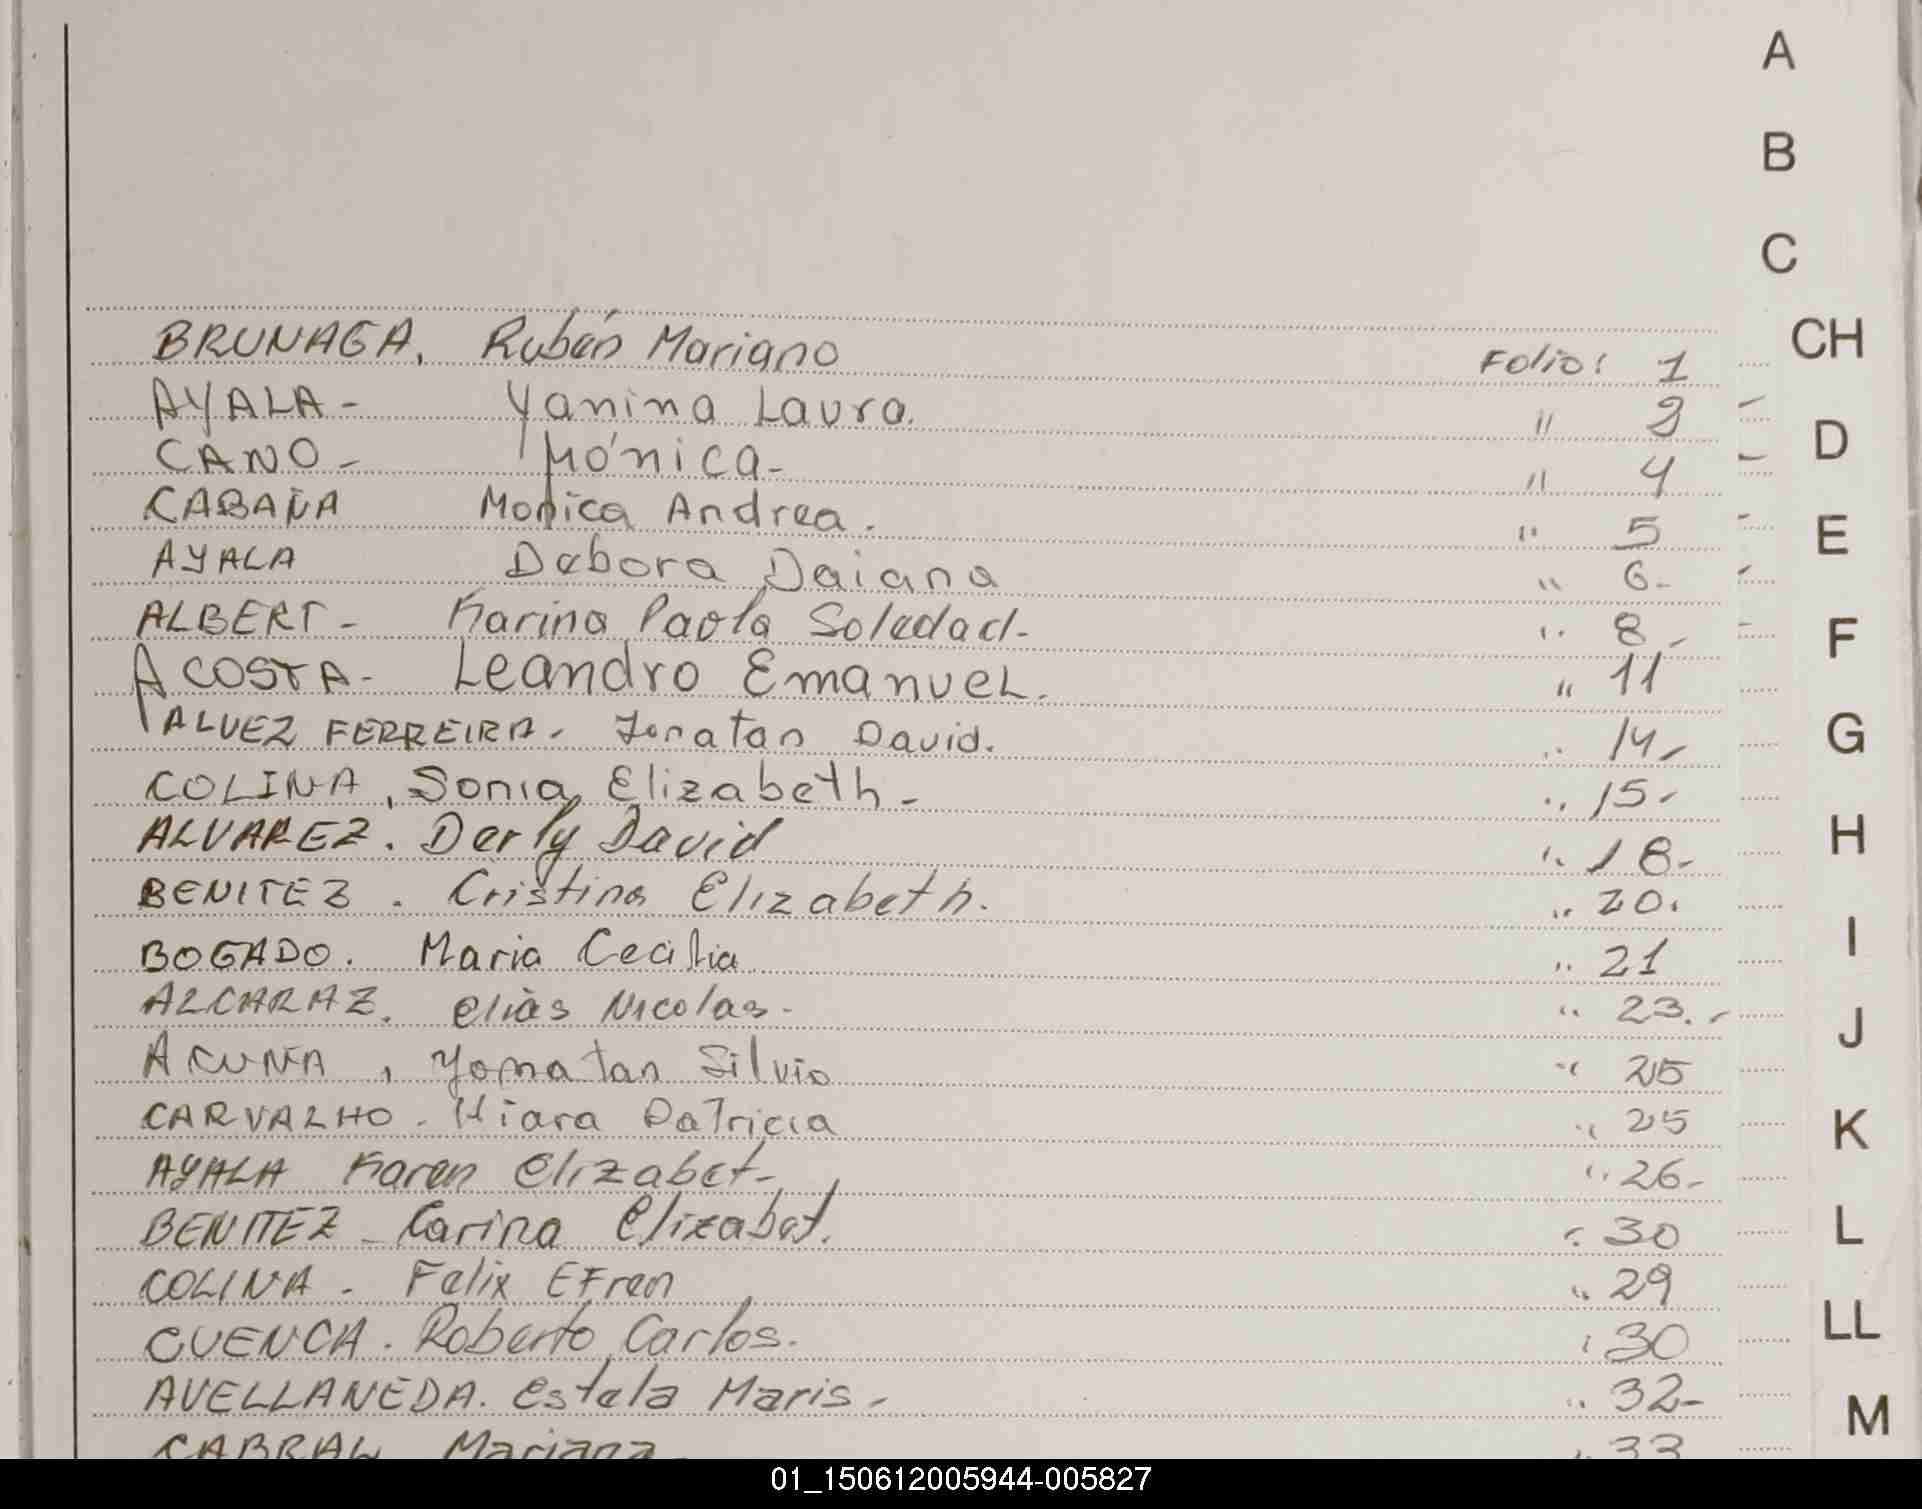 A
B
C
BRUNAGA, Rubén Mariano Folio: 1
CH
AYALA - Yanina Laura. " 2
D
CANO - Mónica - " 4
CABAÑA Monica Andrea. " 5
E
AYALA Debora Daiana " 6-
ALBERT - Karina Paola Soledad - " 8-
F
ACOSTA - Leandro Emanuel. " 11
ALVEZ FERREIRA - Jonatan David. " 14-
G
COLINA, Sonia Elizabeth - " 15-
ALVAREZ. Derly David " 18-
H
BENITEZ. Cristina Elizabeth. " 20.
BOGADO. Maria Cecilia " 21
I
ALCARAZ. Eliàs Nicolas - " 23.-
J
ACUÑA, Yonatan Silvio " 25
CARVALHO - Kiara Patricia " 25
K
AYALA Karen Elizabet - " 26-
BENITEZ - Carina Elizabet. " 30
L
COLINA - Felix EFren " 29
CUENCA. Roberto Carlos. " 30
LL
AVELLANEDA. Estela Maris - " 32-
M
CABRAL Mariana " 33
01_150612005944-005827